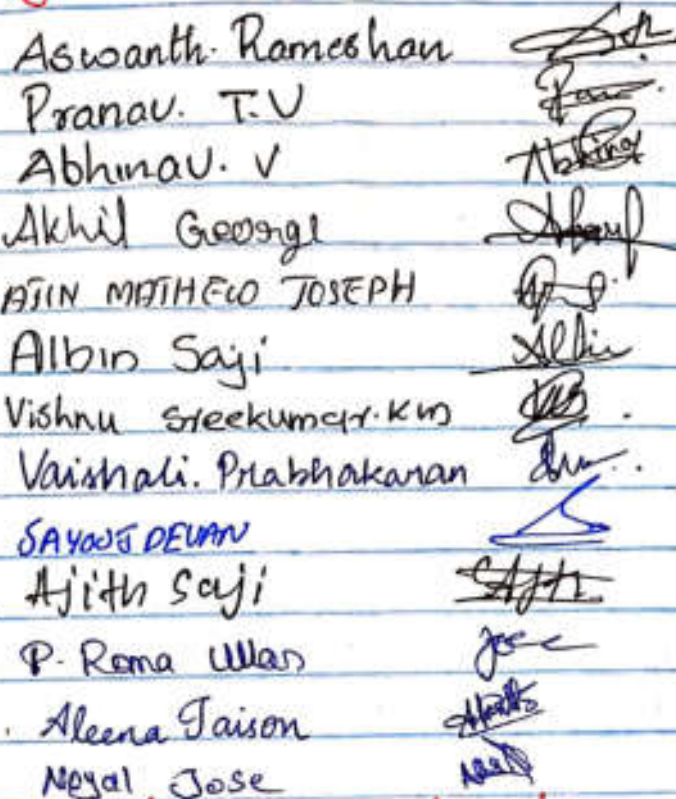 Aswanth. Rameshan
Pranav. T.V
Abhinav. V Abhinav
Akhil George
AJIN MATHEW JOSEPH
Albin Saji Albin
Vishnu sreekumar.km
Vaishali. Prabhakaran
SAYOOJ DEVAN
Ajith Saji Ajith
P. Roma
Aleena Jaison
Neyal Jose